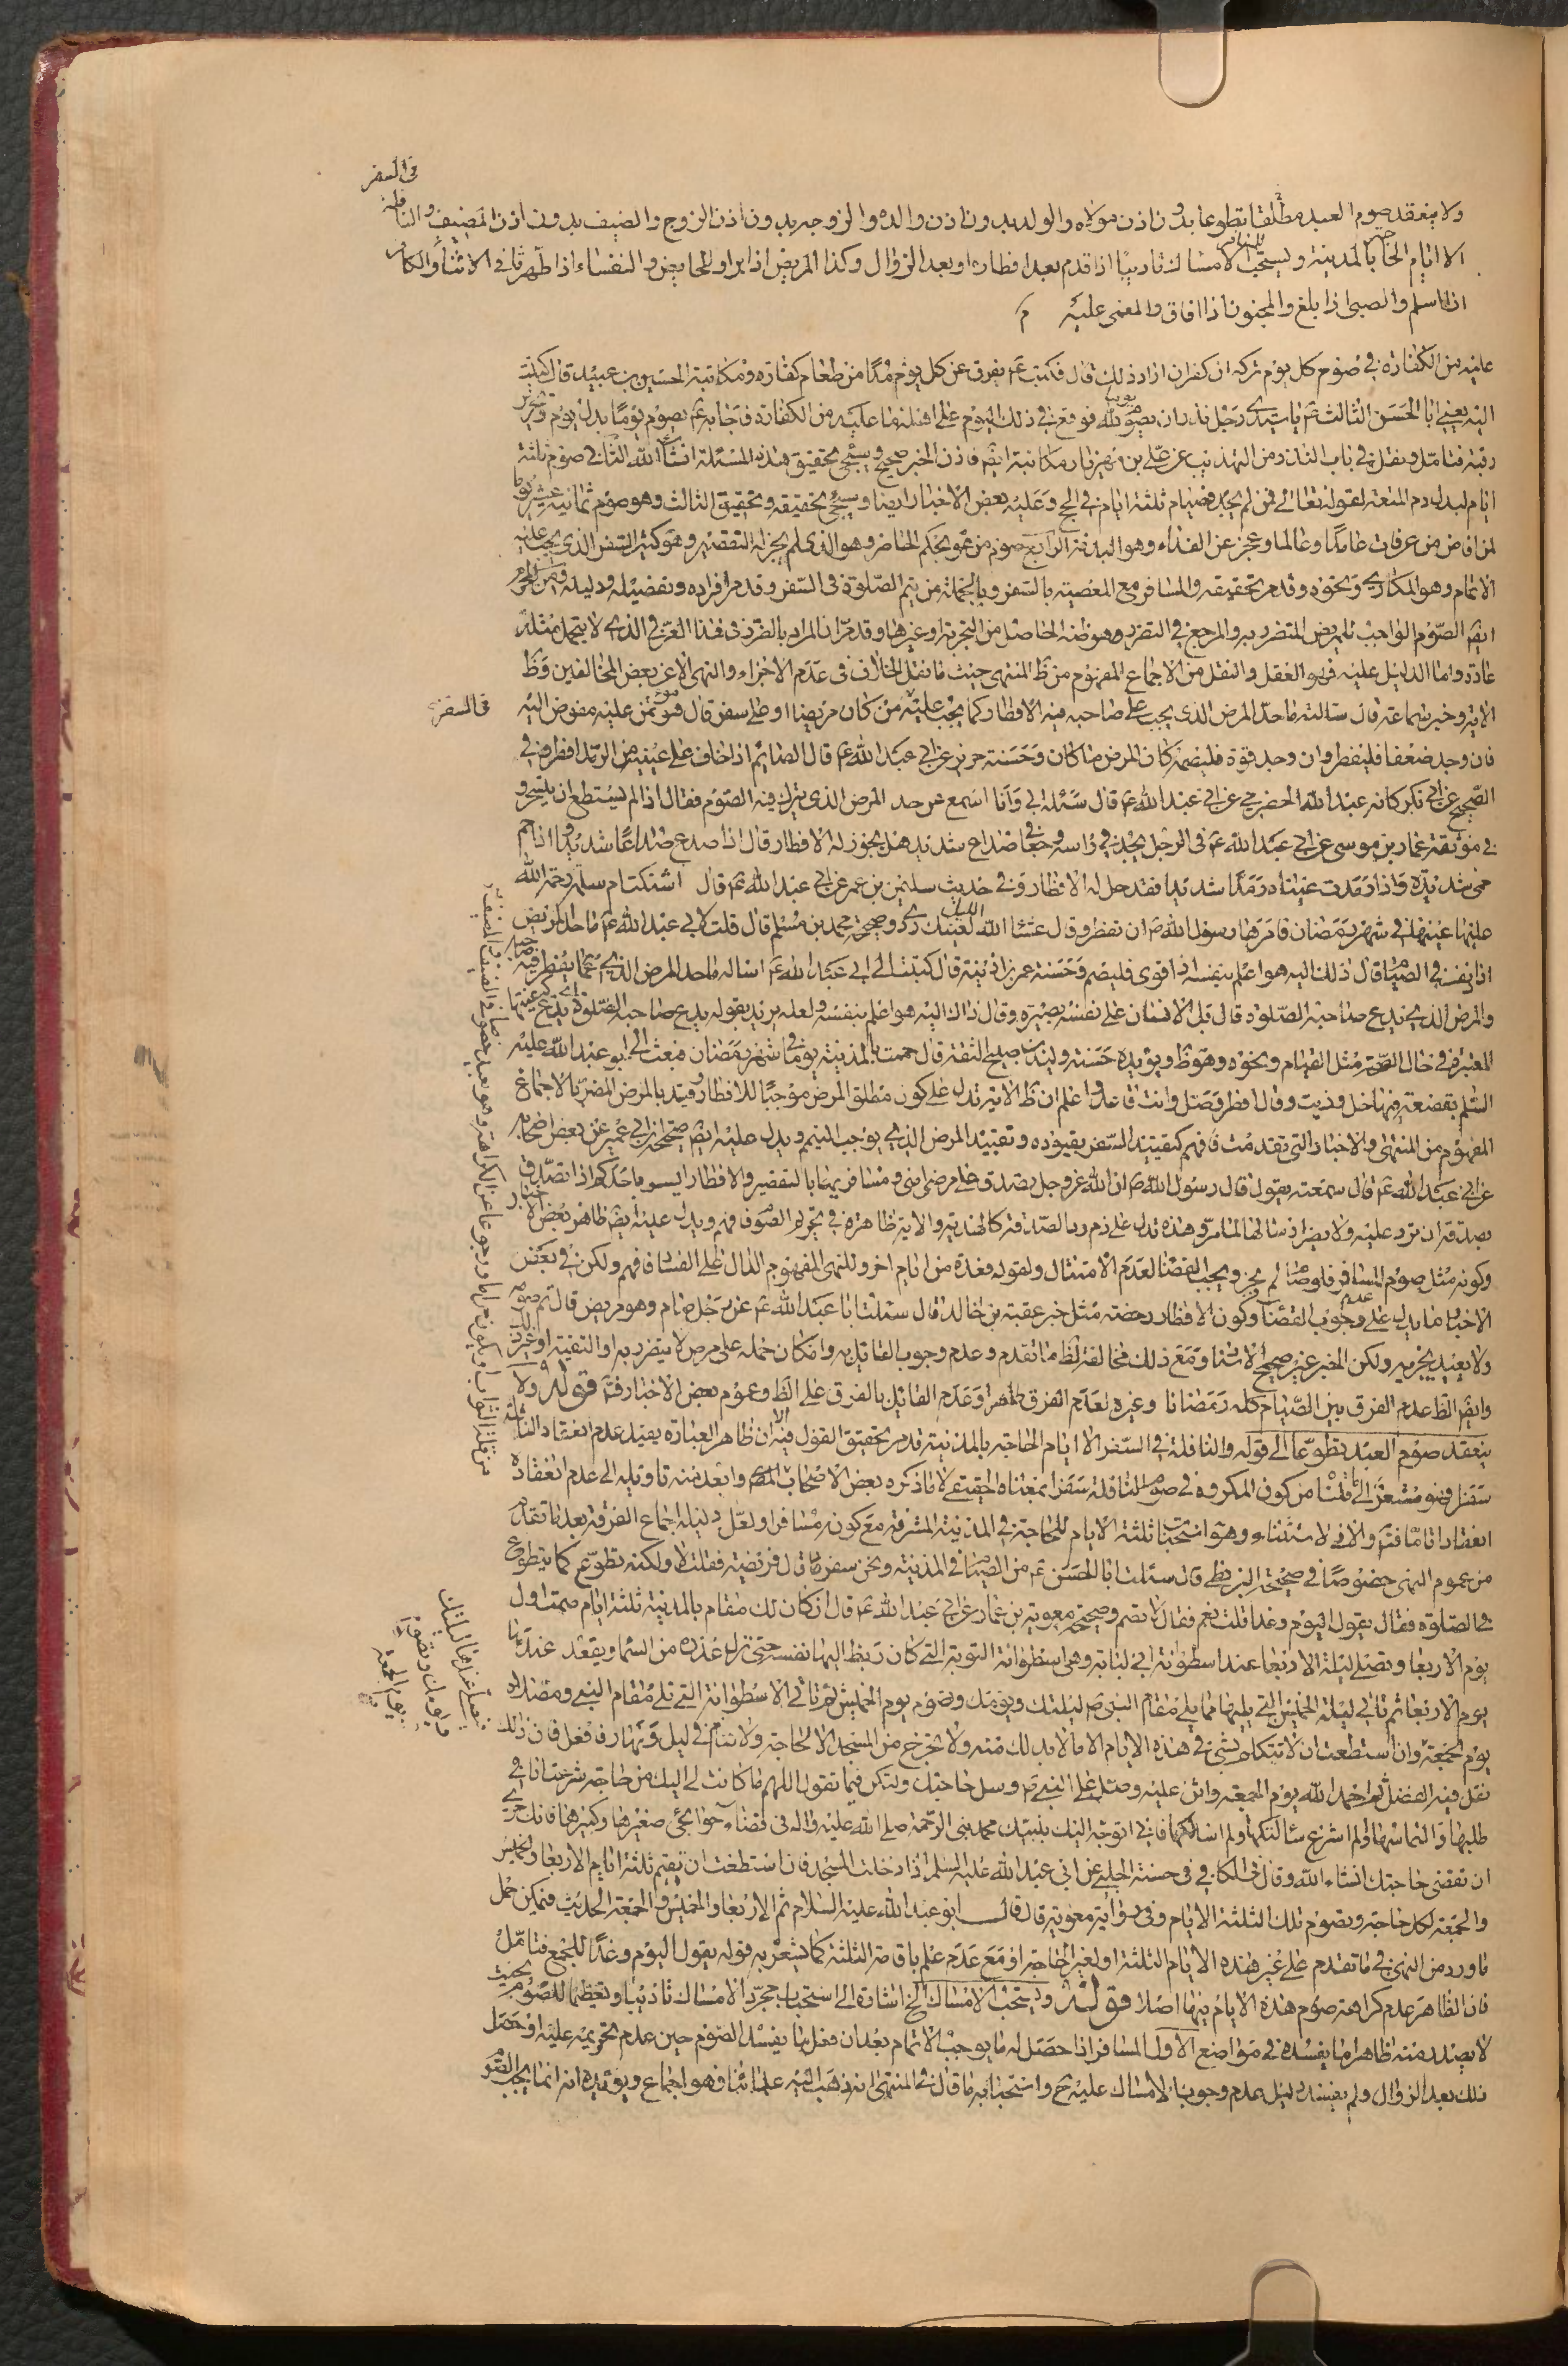 في السفر
ولا ينعقد صوم العبد مطلقا تطوعا بدون اذن مولاه والولد بدون اذن والده والزوجه بدون اذن الزوج والضيف بدون اذن المضيف والنافلة
الا ايام الحاجة بالمدينة ويستحب الامساك تاديبا للمسافر اذا قدم بعد افطاره او بعد الزوال وكذا المريض اذا برا والحايض والنفساء اذا طهرتا في الاثناء والكافر
اذا اسلم والصبى اذا بلغ والمجنون اذا افاق والمغمى عليه
عليه من الكفارة في صوم كل يوم تركه ان كفر ان اراد ذلك قال فكتب ع يفرق عن كل يوم مُدًا من طعام كفارة ومكاتبة الحسين بن عبيد قال كتبت
اليه يعني ابا الحسن الثالث ع يا سيدي رجل نذر ان يصوم يوما لله فوقع في ذلك اليوم على اهله ما عليه من الكفارة فاجابه ع يصوم يومًا بدل يوم وتحرير
رقبة فتامل ونقل في باب النذر من التهذيب عن علي بن مهزيار مكاتبة ايضا فاذن الخبر صحيح وسيجئ تحقيق هذه المسئلة انشاء الله الثاني صوم ثلثة
ايام لبدل دم المتعة لقوله تعالى فمن لم يجد فصيام ثلثة ايام في الحج وعليه بعض الاخبار ايضا وسيجئ تحقيقه وتحقيق الثالث وهو صوم ثمانية عشر يوما
لمن افاض من عرفات عامدًا وعالما وعجز عن الفداء وهو البدنة الرابع صوم من هو بحكم الحاضر وهو الذي لم يجز له التقصير وهو كثير السفر الذي يجب عليه
الاتمام وهو المكاري ونحوه وقد مر تحقيقه والمسافر مع المعصية بالسفر وبالجملة من يتم الصلوة في السفر وقد مر افراده وتفصيله ودليله ومن المحرم
ايضا الصوم الواجب للمريض المتضرر به والمرجع في التضرر هو ظنه الحاصل من التجربة او غيرها وقد مر ان المراد بالضرر في هذا العرفي الذي لا يتحمل مثله
عادة واما الدليل عليه فهو العقل والنقل من الاجماع المفهوم من ظ المنتهى حيث ما نقل الخلاف في عدم الاجزاء والنهى الا عن بعض المخالفين وظ
الاية وخبر سماعة قال سالته ما حد المرض الذي يجب على صاحبه فيه الافطار كما يجب عليه من كان مريضا او على سفر قال هو مؤتمن عليه مفوض اليه
في السفر
فان وجد ضعفا فليفطر وان وجد قوة فليصمه كان المرض ما كان وحسنة حريز عن ابي عبد الله ع قال الصايم اذا خاف على عينيه من الرمد افطر وفي
الصحيح عن ابي بكر كانه عبد الله الحضرمي عن ابي عبد الله ع قال سئله ابي وانا اسمع عن حد المرض الذي يترك فيه الصوم فقال اذا لم يستطع ان يتسحر و
في موثقة عمار بن موسى عن ابي عبد الله ع في الرجل يجد في راسه وجعا في صداع شديد هل يجوز له الافطار قال اذا صدع صداعًا شديدا واذا حم
حمى شديدة واذا رمدت عيناه رمدًا شديدا فقد حل له الافطار وفي حديث سليمن بن عمر عن ابي عبد الله ع قال اشتكت ام سلمة رحمة الله
عليها عينيها في شهر رمضان فامرها رسول الله ص ان تفطر وقال عشاء الليل لعينيك ردي وصحيح محمد بن مسلم قال قلت لابي عبد الله ع ما حد المريض
اذا نقه في الصيام قال ذلك اليه هو اعلم بنفسه اذا قوى فليصم وحسنة عمر بن اذينة قال كتبت الى ابي عبد الله ع اساله ما حد المرض الذي يفطر فيه صاحبه
والمرض الذي يدع صاحبه الصلوة قال قال بل الانسان على نفسه بصيرة وقال ذاك اليه هو اعلم بنفسه ولعله يريد بقوله يدع صاحبه الصلوة يدع هيئتها
المعتبرة في حال الصحة مثل القيام ونحوه وهو ظ ويؤيده حسنة وليد بن صبيح الثقة قال حممت بالمدينة يوما في شهر رمضان فبعث الى ابو عبد الله عليه
السلم بقصعة فيها خل وزيت وقال افطر وصل وانت قاعد واعلم ان ظ الاية تدل على كون مطلق المرض موجبًا للافطار وقيد بالمرض المضر بالاجماع
المفهوم من المنتهى والاخبار التي تقدمت فافهم كتقييد السفر بقيوده وتقييد المرض الذي يوجب التيمم ويدل عليه ايضا صحيحة ابن ابي عمير عن بعض اصحابه
عن ابي عبد الله ع قال سمعته يقول قال رسول الله ص ان الله عز وجل تصدق على مرضى امتي ومسافريها بالتقصير والافطار ايسر احدكم اذا تصدق
بصدقة ان ترد عليه ولا يضر ارسالها لما مر وهذه تدل على ذم رد الصدقة كالهدية والاية ظاهرة في تحريم الصوم فهم ويدل عليه ايضا ظاهر بعض الاخبار
وكونه مثل صوم المسافر فلو صام لم يجز ويجب القضا لعدم الامتثال ولقوله فعدة من ايام اخر وللنهى المفهوم الدال على الفساد فافهم ولكن في بعض
الاخبار ما يدل على عدم وجوب القضا وكون الافطار رخصة مثل خبر عقبة بن خالد قال سئلت ابا عبد الله ع عن رجل صام وهو مريض قال يتم صومه
ولا يعيد يجزيه ولكن الخبر غير صحيح الاسناد ومع ذلك مخالفة لظ ما تقدم وعدم وجوب القايل به وامكان حمله على مرض لا يتضرر به او التقية او غير ذلك
وايضا الظ عدم الفرق بين الصيام كله رمضانا وغيره لعدم الفرق ظاهرا وعدم القايل بالفرق على الظ وعموم بعض الاخبار فتم قوله ولا
ينعقد صوم العبد تطوعا الى قوله والنافلة في السفر الا ايام الحاجة بالمدينة قد مر تحقيق القول فيه الا ان ظاهر العبارة يفيد عدم انعقاد النافلة
سفرا وهو مشعر الى ما قلنا من كون المكروه في صوم النافلة سفرا بمعناه الحقيقي لا ما ذكره بعض الاصحاب والبعد منه تاويله الى عدم انعقاده
انعقادا تاما فتم والا في الاستثناء وهو استحباب ثلثة الايام للحاجة في المدينة المشرفة مع كونه مسافرا ولعل دليله اجماع الفرقة بعد ما تقدم
من عموم النهى خصوصًا في صحيحة البزنطي قال سئلت ابا الحسن ع من الصيام في المدينة ونحن سفر قال فريضة فقلت لا ولكنه تطوع كما يتطوع
في الصلوة فقال يقول اليوم وغدا قلت نعم فقال لا تصم وصحيحة معوية بن عمار عن ابي عبد الله ع قال ان كان لك مقام بالمدينة ثلثة ايام صمت اول
يوم الاربعا وتصلي ليلة الاربعا عند اسطوانة ابي لبابة وهي اسطوانة التوبة التي كان ربط اليها نفسه حتى نزل عذره من السما ويقعد عندها
يوم الاربعا ثم تاتي ليلة الخميس التي يليها مما يلي مقام النبي ص ليلتك ويومك وتصوم يوم الخميس ثم تاتي الاسطوانة التي تلي مقام النبي ومصلاه
ليلة الجمعة فتصلي عندها ليلتك
ويومك وتصوم
يوم الجمعة
يوم الجمعة وان استطعت ان لا تتكلم بشئ في هذه الايام الا ما لابد لك منه ولا تخرج من المسجد الا لحاجة ولا تنام في ليل ونهار فافعل فان ذلك
نقل فيه الفضل ثم احمد الله يوم الجمعة واثن عليه وصل على النبي ص وسل حاجتك وليكن فيما تقول اللهم ما كانت لي اليك من حاجة شرعت انا في
طلبها والتماسها او لم اشرع سالتكها او لم اسالكها فاني اتوجه اليك بنبيك محمد نبي الرحمة صلى الله عليه واله في قضاء حوائجي صغيرها وكبيرها فانك حري
ان تقضى حاجتك انشاء الله وقال في الكافي في حسنة الحلبي عن ابي عبد الله عليه السلم اذا دخلت المسجد فان استطعت ان تقيم ثلثة ايام الاربعا والخميس
والجمعة لكل حاجة وتصوم تلك الثلثة الايام وفي رواية معوية قال قال ابو عبد الله عليه السلام ثم الاربعا والخميس والجمعة الحديث فيمكن حمل
ما ورد من النهى في ما تقدم على غير هذه الايام الثلثة او لغير الحاجة او مع عدم علم باقامة الثلثة كما يشعر به قوله يقول اليوم وغدًا للجمع فتامل
فان الظاهر عدم كراهة صوم هذه الايام فيها اصلا قوله ويستحب الامساك الخ اشارة الى استحباب مجرد الامساك تاديبا وتعظيما للصوم بحيث
لا يصدر منه ظاهرا ما يفسده في مواضع الاول المسافر اذا حصل له ما يوجب الاتمام بعد ان فعل ما يفسد الصوم حين عدم تحريمه عليه او حصل
ذلك بعد الزوال ولم يفسده دليل عدم وجوب الامساك عليه ح واستحبابه ما قال في المنتهى انه ذهب اليه علمائنا فهو اجماع ويؤيده انه انما يجب الصوم